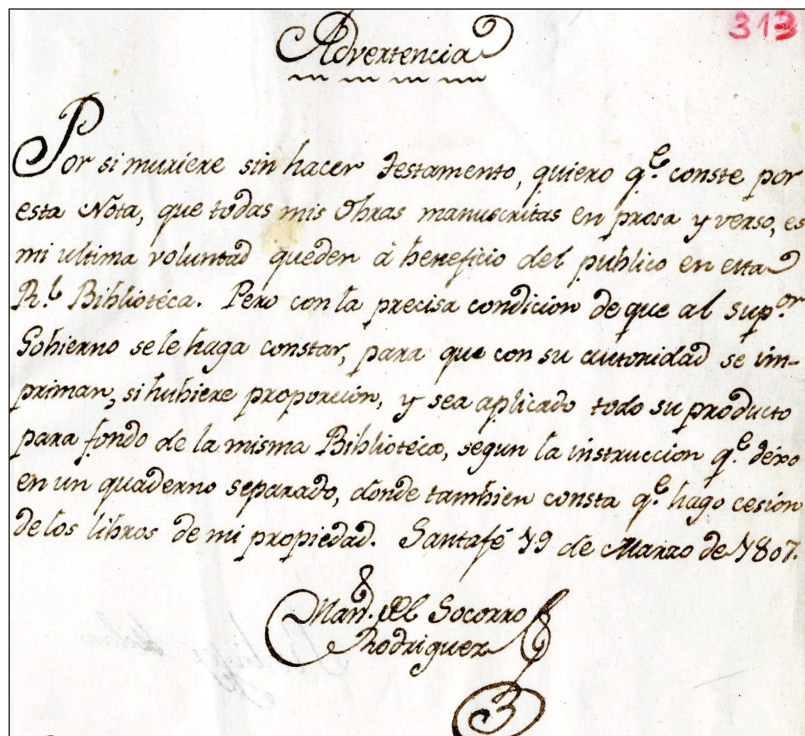 313
Advertencia
Por si muriere sin hacer Testamento, quiero q.e conste por
esta Nota, que todas mis Obras manuscritas en prosa y verso, es
mi ultima voluntad queden à beneficio del publico en esta
R.l Bibliotéca. Pero con la precisa condicion de que al sup.or
Gobierno se le haga constar, para que con su autoridad se im-
priman, si hubiere proporcion, y sea aplicado todo su producto
para fondo de la misma Biblioteca, segun la instruccion q.e déxo
en un quaderno separado, donde tambien consta q.e hago cesión
de los libros de mi propiedad. Santafé 19 de Marzo de 1807.
Man.l del Socorro
Rodriguez